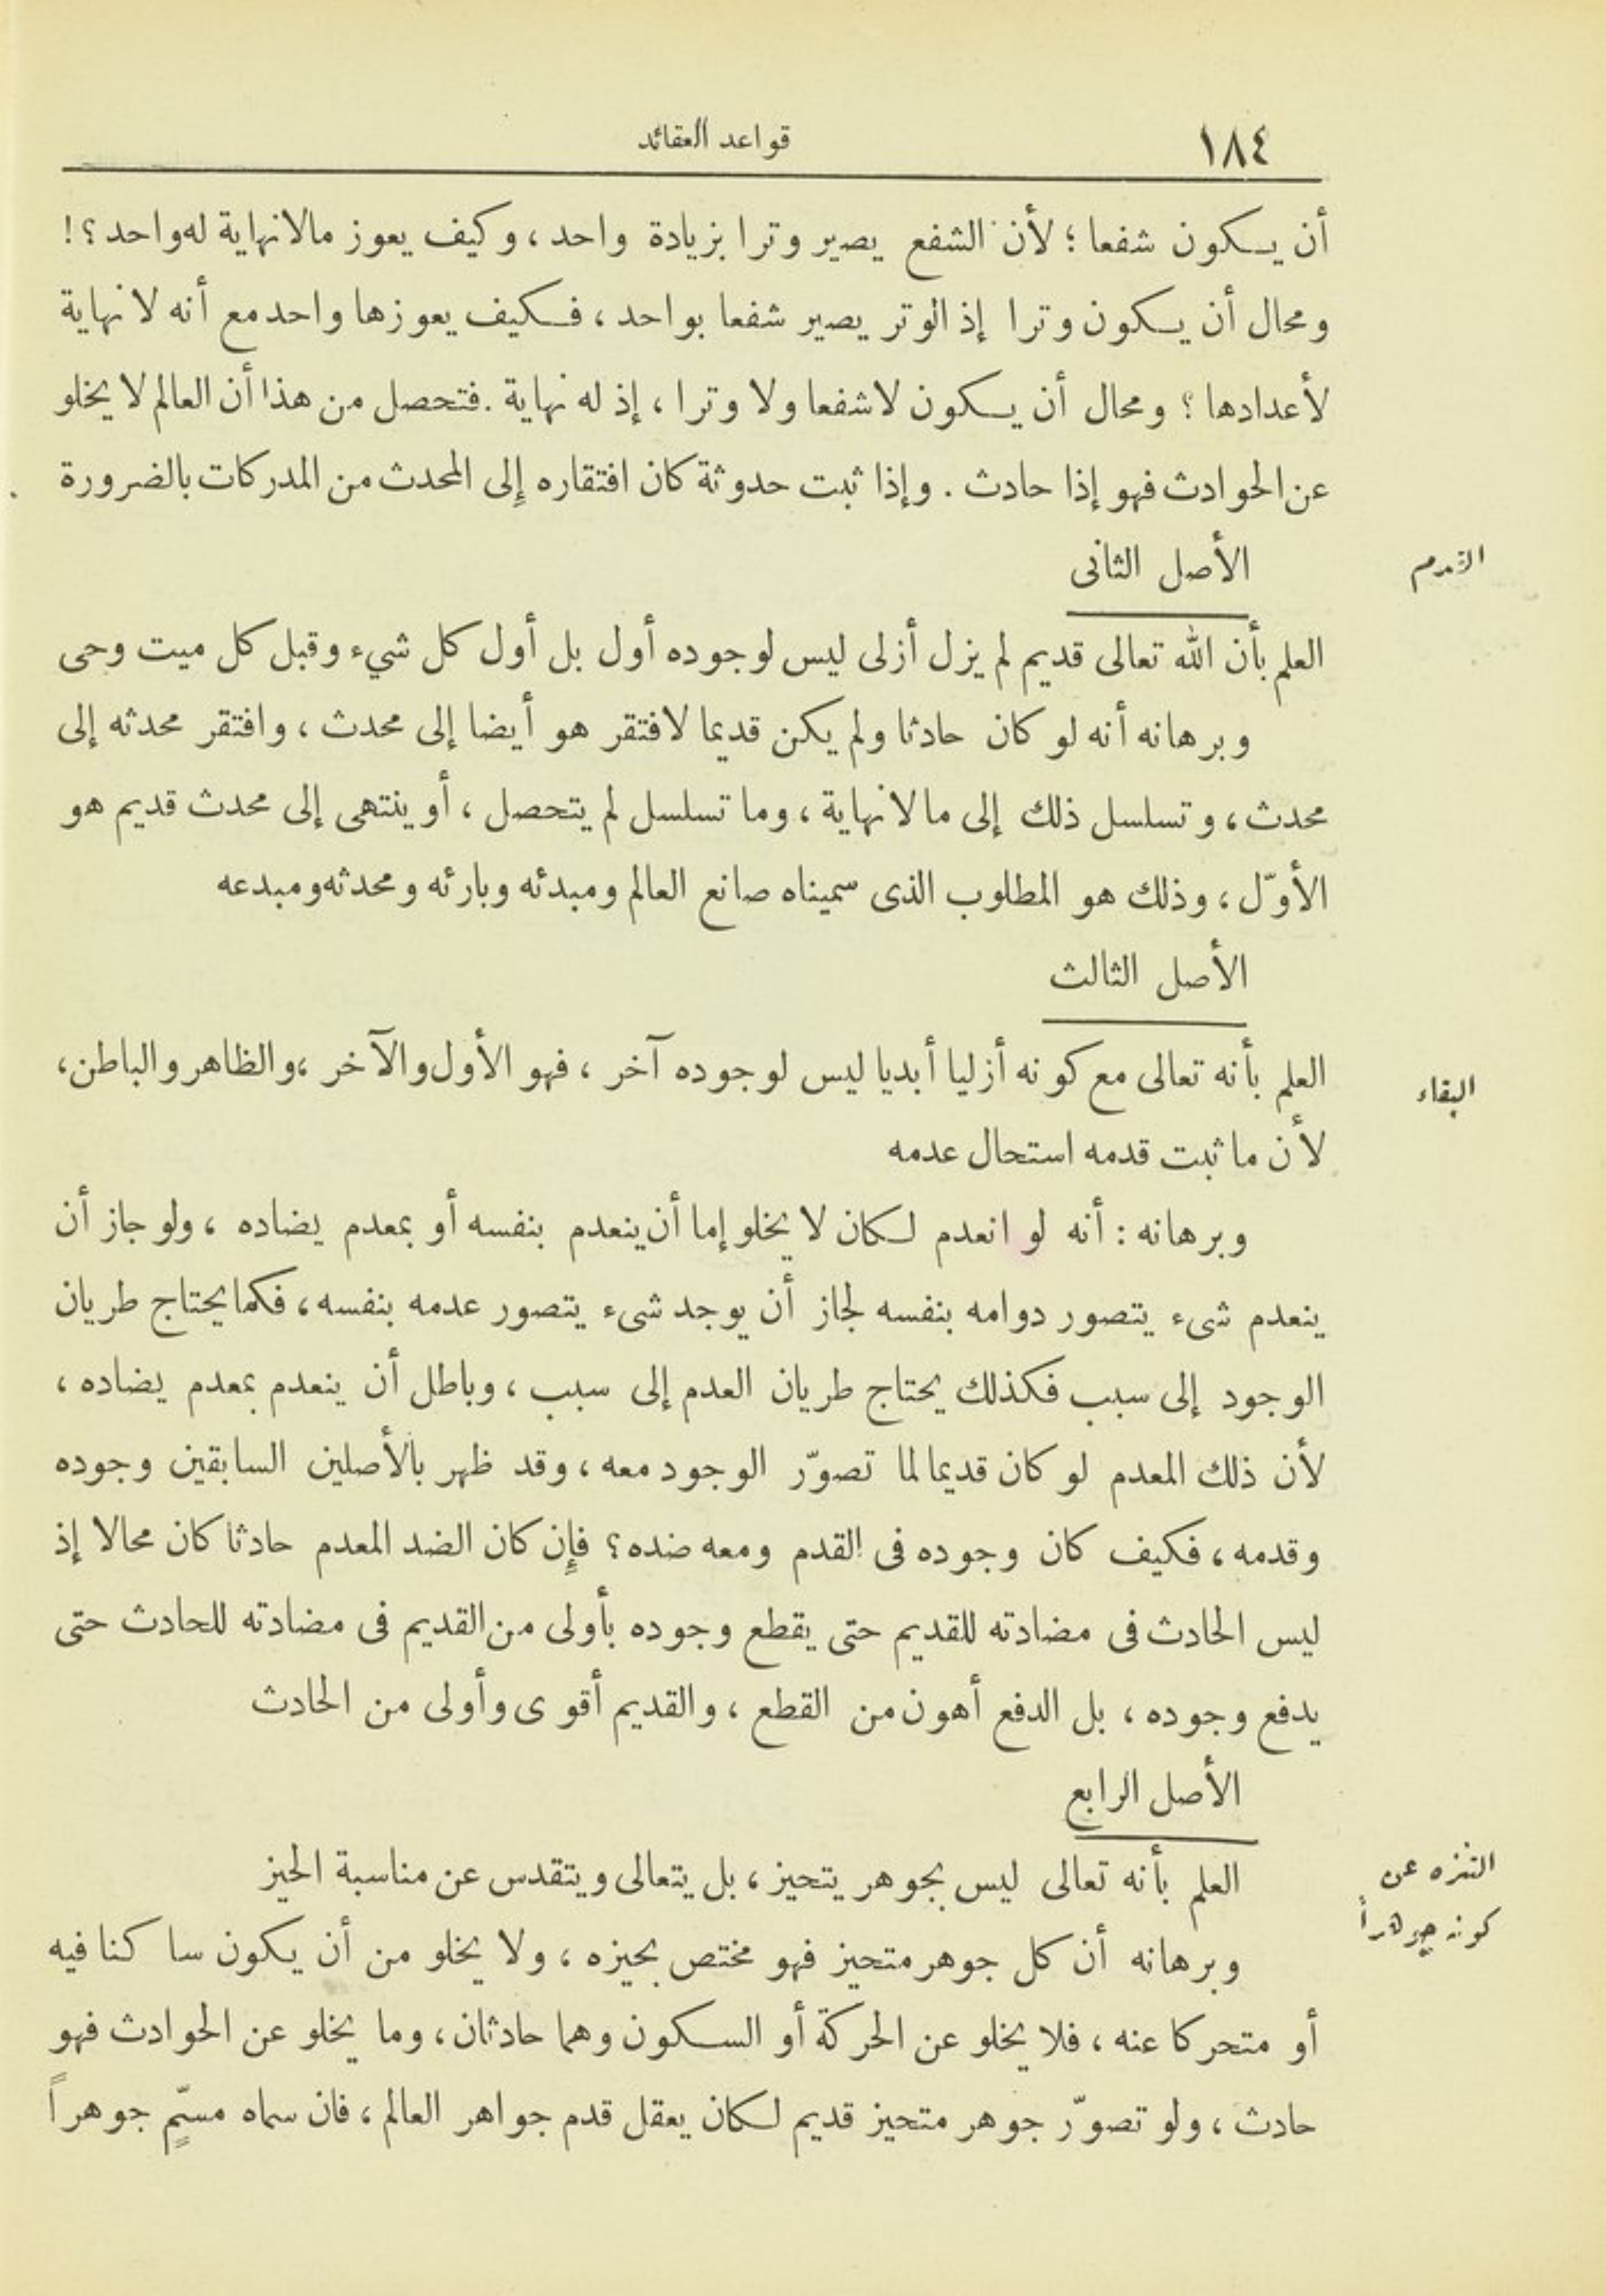 ١٨٤
قواعد العقائد
أن يكون شفعا ؛ لأن الشفع يصير وترا بزيادة واحد ، وكيف يعوز مالا نهاية له واحد ؟ !
ومحال أن يكون وترا إذ الوتر يصير شفعا بواحد ، فكيف يعوزها واحد مع أنه لا نهاية
لأعدادها ؟ ومحال أن يكون لا شفعا ولا وترا ، إذ له نهاية . فتحصل من هذا أن العالم لا يخلو
عن الحوادث فهو إذا حادث . وإذا ثبت حدوثة كان افتقاره إلى المحدث من المدركات بالضرورة
الأصل الثانى
القدم
العلم بأن الله تعالى قديم لم يزل أزلى ليس لوجوده أول بل أول كل شيء وقبل كل ميت وحى
وبرهانه أنه لو كان حادثا ولم يكن قديما لافتقر هو أيضا إلى محدث ، وافتقر محدثه إلى
محدث ، وتسلسل ذلك إلى ما لا نهاية ، وما تسلسل لم يتحصل ، أو ينتهى إلى محدث قديم هو
الأوّل ، وذلك هو المطلوب الذى سميناه صانع العالم ومبدئه وبارئه ومحدثه ومبدعه
الأصل الثالث
العلم بأنه تعالى مع كونه أزليا أبديا ليس لوجوده آخر ، فهو الأول والآخر ، والظاهر والباطن ،
البقاء
لأن ما ثبت قدمه استحال عدمه
وبرهانه : أنه لو انعدم لكان لا يخلو إما أن ينعدم بنفسه أو بمعدم يضاده ، ولو جاز أن
ينعدم شىء يتصور دوامه بنفسه لجاز أن يوجد شىء يتصور عدمه بنفسه ، فكما يحتاج طريان
الوجود إلى سبب فكذلك يحتاج طريان العدم إلى سبب ، وباطل أن ينعدم بمعدم يضاده ،
لأن ذلك المعدم لو كان قديما لما تصوّر الوجود معه ، وقد ظهر بالأصلين السابقين وجوده
وقدمه ، فكيف كان وجوده فى القدم ومعه ضده ؟ فإن كان الضد المعدم حادثا كان محالا إذ
ليس الحادث فى مضادته للقديم حتى يقطع وجوده بأولى من القديم فى مضادته للحادث حتى
يدفع وجوده ، بل الدفع أهون من القطع ، والقديم أقوى وأولى من الحادث
الأصل الرابع
العلم بأنه تعالى ليس بجوهر يتحيز ، بل يتعالى ويتقدس عن مناسبة الحيز
التنزه عن
كونه جوهراً
وبرهانه أن كل جوهر متحيز فهو مختص بحيزه ، ولا يخلو من أن يكون ساكنا فيه
أو متحركا عنه ، فلا يخلو عن الحركة أو السكون وهما حادثان ، وما يخلو عن الحوادث فهو
حادث ، ولو تصوّر جوهر متحيز قديم لكان يعقل قدم جواهر العالم ، فان سماه مسمٍّ جوهراً